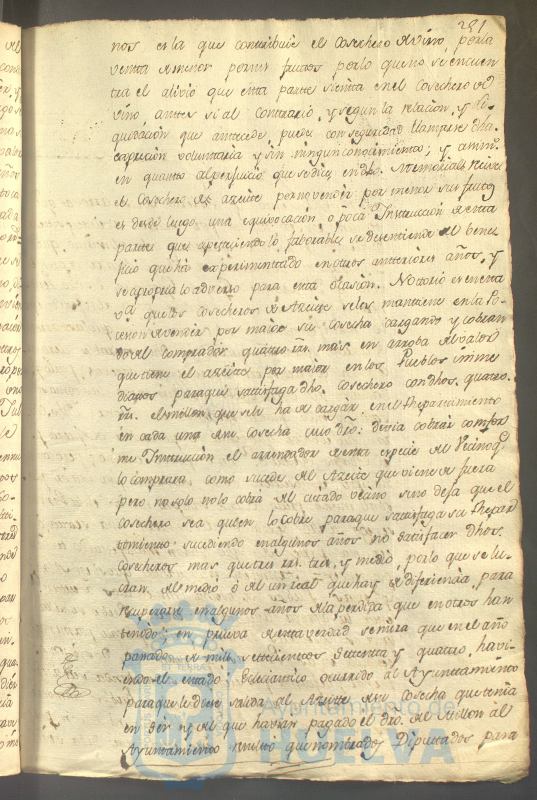 251
nos es la que contribuie el Cosechero de vino, por la
venta de menor por sus frutos por lo que no se encuen
tra el alivio que esta parte sienta en el Cosechero de
vino, antes si al contrario, y segun la relacion, y li
quidacion que antecede puede con seguridad llamarse dha
expresion voluntaria y sin ningun conocimiento; y
en quanto al perjuicio que se dice en dho. Memorial
el Cosechero de Azeite por no vender por menor sus frutos
es desde luego una equivocacion o poca Instruccion de esta
parte que apeteciendo lo faborable se desentiende del bene
ficio que ha experimentado en otros anteriores años, y
se apropia lo adverso para esta ocasion. Notorio es en esta
va. que los Cosecheros de Azeite se les mantiene en la Po
cesion de vender por maior su cosecha cargando y cobran
do del comprador quatro rrs. mas en arroba del valor
que tiene el azeite por maior en los Pueblos inme
diatos para que satisfaga dho. Cosechero con dhos. quatro
rrs. el millon que se le ha de cargar en el Repartimiento
en cada una de su Cosecha cuio dro: devia cobrar confor
me Instruccion el arrendador de esta especie del Vecino q.
lo comprara, como sucede del Azeite que viene de fuera
pero no solo no lo cobra del citado vecino sino deja que el
Cosechero sea quien lo cobre para que satisfaga su Repar
timiento sucediendo en algunos años no satisfacer dhos.
Cosecheros mas que tres rrs. tres, y medio, por lo que se lu
cran del medio o del un real que hay de diferiencia, para
recuperarse en algunos años de la perdida que en otros han
tenido; en prueva de esta verdad se mira que en el año
pasado de mill settecientos setenta y quatro, havi
endo el citado ocurrido al Ayuntamiento
para que le diese salida al Azeite de su Cosecha que tenia
en ser y del que havian pagado el dro. de Millon al
Ayuntamiento resultó que nombrados Diputados para
Ayuntamiento de
HUELVA